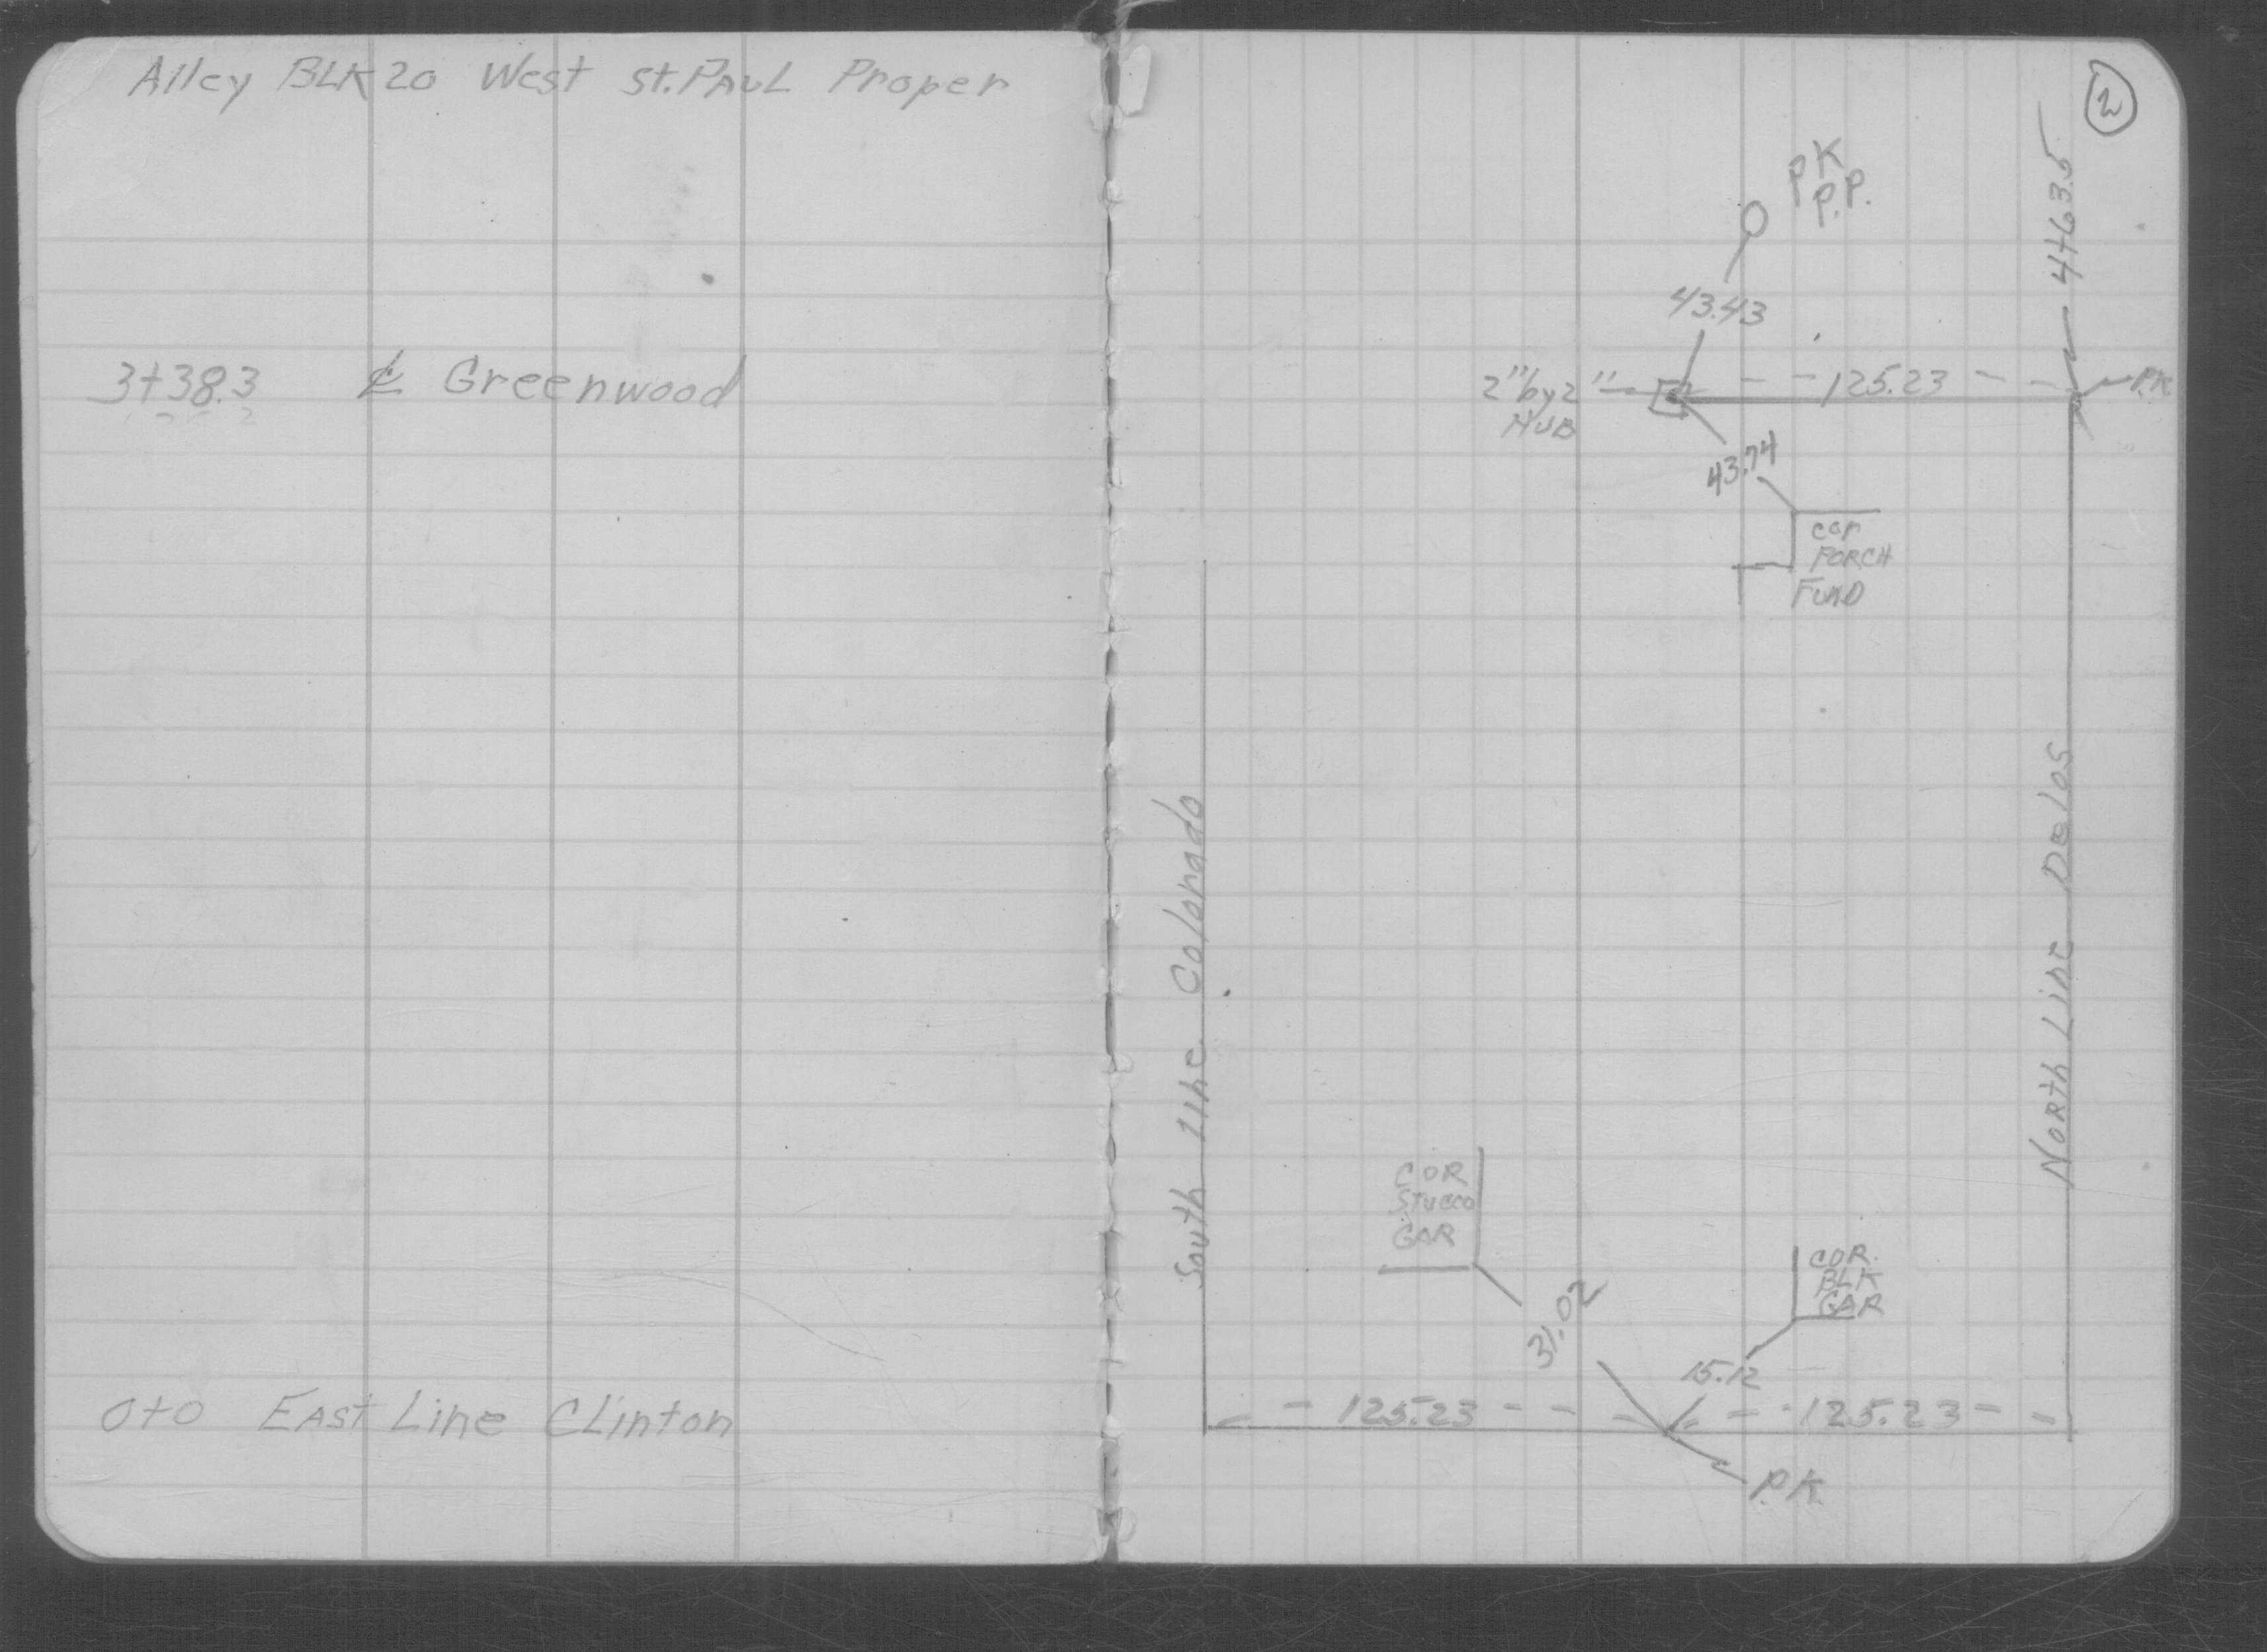 Alley BLK 20 West St. PAUL Proper
3+38.3 ℄ Greenwood
0+0 EAST Line CLinton
2
PK
P.P.
4+63.5
43.43
2" by 2"
HUB
125.23
P.K.
43.74
cor
PORCH
FUND
South Line Colorado
North Line Delos
COR
STUCCO
GAR
COR.
BLK
GAR
31.02
15.12
125.23
125.23
P.K.